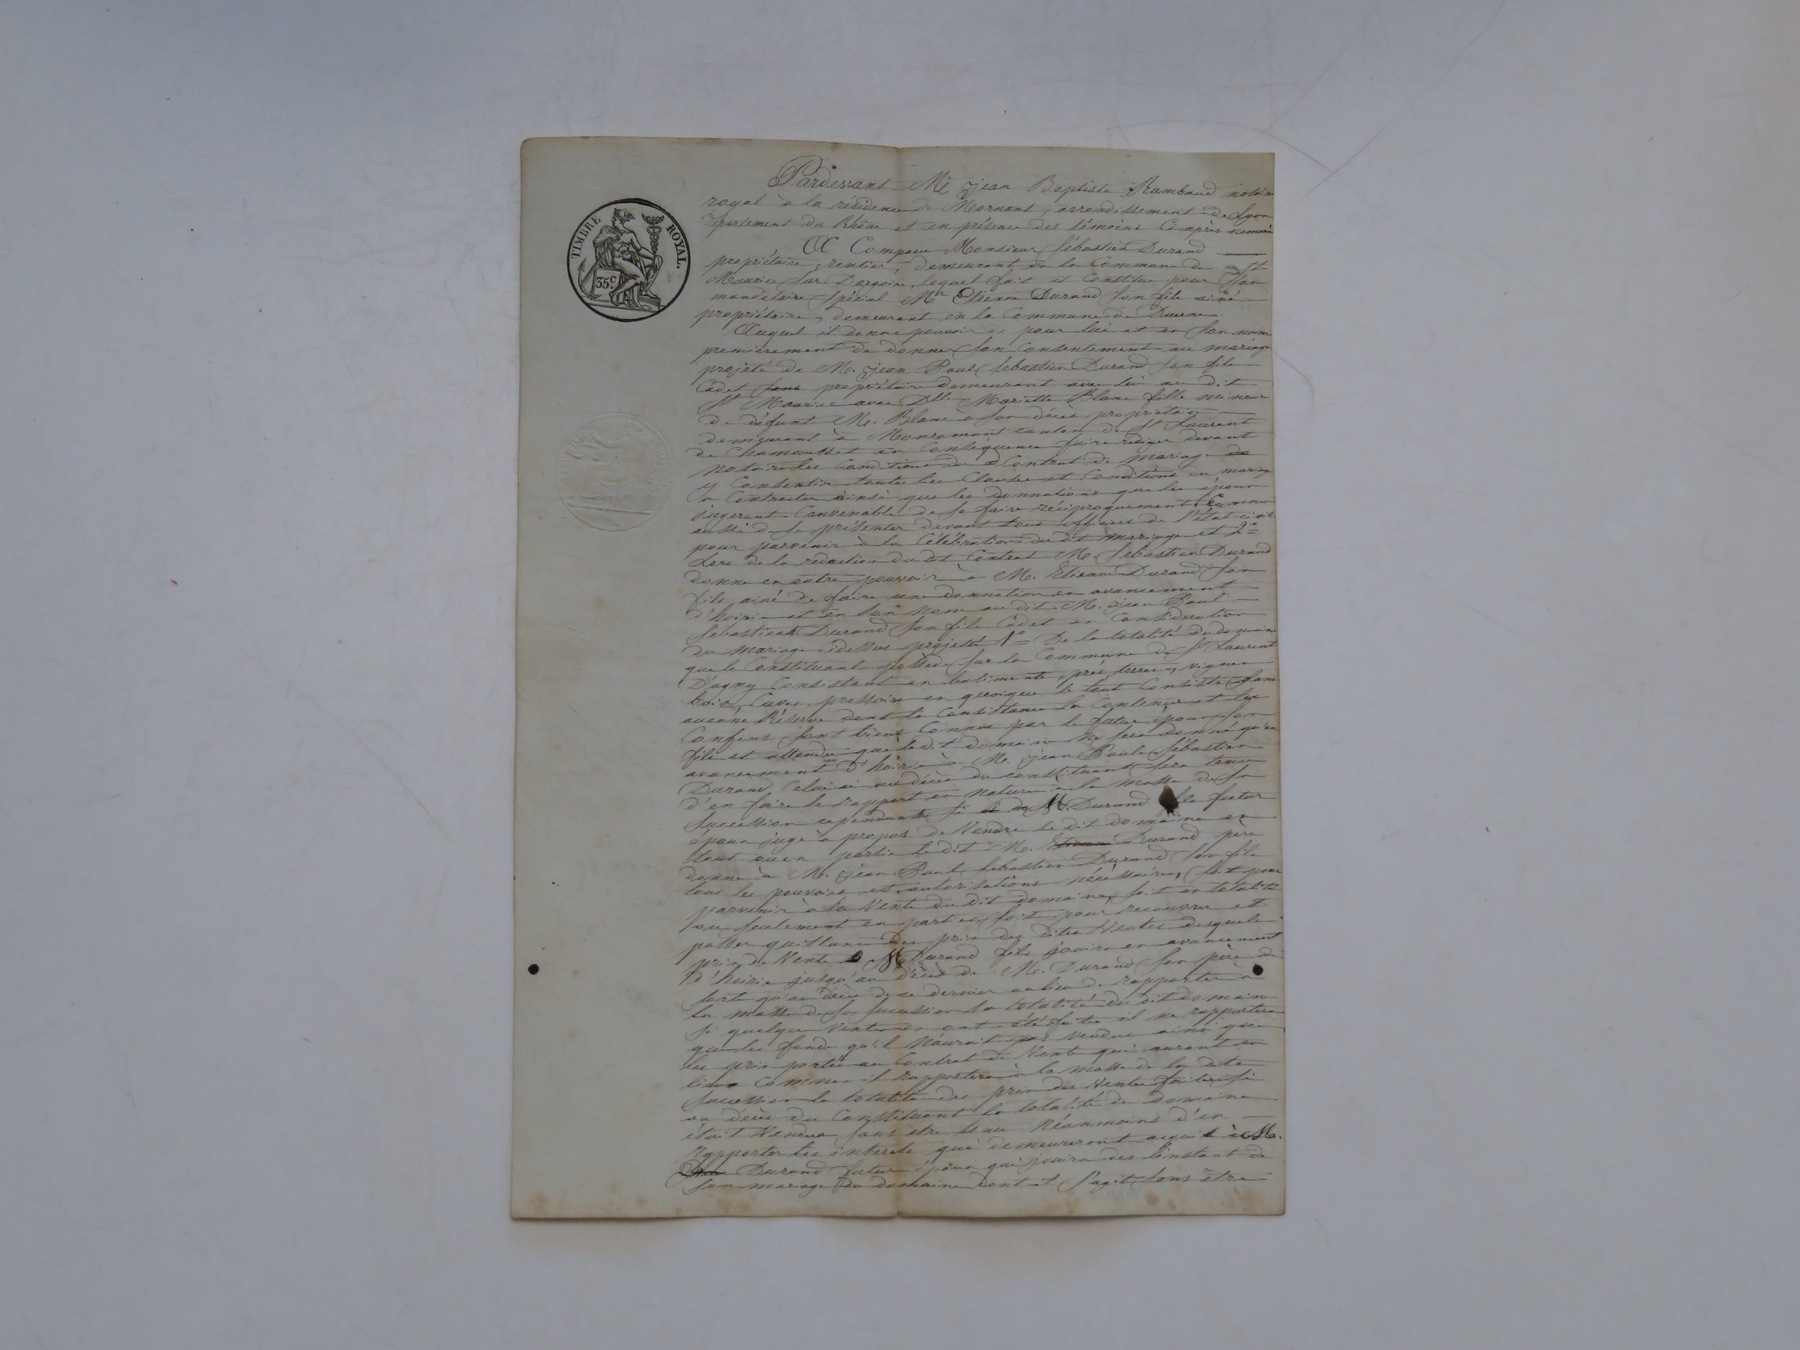 TIMBRE ROYAL.
35 c.
Pardevant Me jean Baptiste Rambaud notaire
royal à la résidence de Mornant, arrondissement de Lyon
département du Rhône et en présence des témoins ci après nommés
A Comparu Monsieur Sébastien Durand
propriétaire rentier, demeurant en la Commune de St
Maurice sur Dargoire, lequel fait et Constitue pour son
mandataire spécial Mr Etienne Durand son fils ainé
propriétaire, demeurant en la Commune de
Auquel il donne pouvoir de pour lui et en son nom
premièrement de donner son Consentement au mariage
projeté de M. jean Paul Sébastien Durand son fils
Cadet propriétaire demeurant avec lui au dit
St Maurice avec Dlle Mariette Blanc fille mineure
de défunt M. Blanc à son décès propriétaire
demeurant à Monromant canton de St Laurent
de Chamousset en Conséquence faire rédiger devant
Notaire les Conditions du Contrat de mariage
y Consentir toutes les Clauses et Conditions du mariage
à Contracter ainsi que les donnations que les époux
jugeront Convenable de se faire réciproquement, Comme
aussi de se présenter devant tous officiers de l'état civil
pour parvenir à la Célébration du dit mariage et 2°
Lors de la rédaction du dit Contrat M. Sébastien Durand
donne en outre pouvoir à M. Etienne Durand son
fils ainé de faire une donnation en avancement
d'hoirie et en son nom au dit M. jean Paul
Sébastien Durand son fils Cadet en Considération
du mariage Cidessus projeté 1° De la totalité du domaine
que le Constituant possède sur la Commune de St Laurent
D'agny Consistant en batiments, prés, terres, vignes
bois, Cuves, pressoire en quoique le tout Consiste sans
aucune Réserve dont la Consistance la Contenue et les
Confins sont bien Connus par le futur époux son
fils et attendu que le dit domaine ne sera donné qu'en
avancement d'hoirie à M. jean Paul Sébastien
Durand, Celui ci au décès du constituant sera tenu
d'en faire le rapport en nature à la masse de sa
succession cependant si M. Durand le futur
époux juge à propos de Vendre le dit domaine en
tout ou en partie le dit M. Etienne Durand père
donne à M. jean Paul Sébastien Durand son fils
tous les pouvoirs et autorisations nécessaires, soit pour
parvenir à la Vente du dit domaine, soit en totalité
ou seulement en parties, soit pour recouvrer et
passer quittance Des prix des dites Ventes desquels
prix de Vente M. Durand fils jouira en avancement
D'hoirie jusqu'au décès de M. Durand son père de
sorte qu'au décès de ce dernier au lieu de rapporter à
la masse de sa succession la totalité du dit domaine
si quelques Ventes en ont été faites il ne rapportera
que les fonds qu'il N'auroit pas Vendu ainsi que
les prix portés au Contrat de Vente qui auront eu
lieu Comme il rapportera à la masse de la dite
succession la totalité des prix des Ventes faites si
au décès du Constituant la totalité du domaine
était Vendue sans être tenu Néanmoins d'en
rapporter les intérets qui demeureront acquis à M.
Durand futur époux qui jouira dès l'instant de
son mariage du domaine dont il s'agit sans être